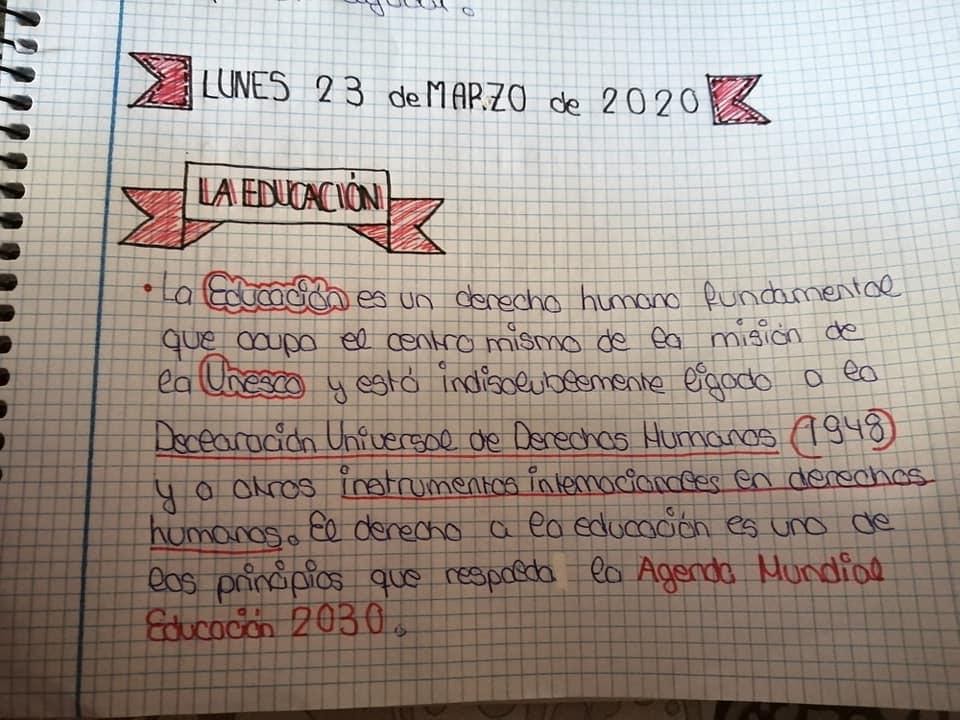 LUNES 23 de MARZO de 2020
LA EDUCACIÓN
• La Educación es un derecho humano fundamental
que ocupa el centro mismo de la misión de
la Unesco y está indisolublemente ligado a la
Declaración Universal de Derechos Humanos (1948)
y a otros instrumentos internacionales en derechos
humanos. El derecho a la educación es uno de
los principios que respalda la Agenda Mundial
Educación 2030.